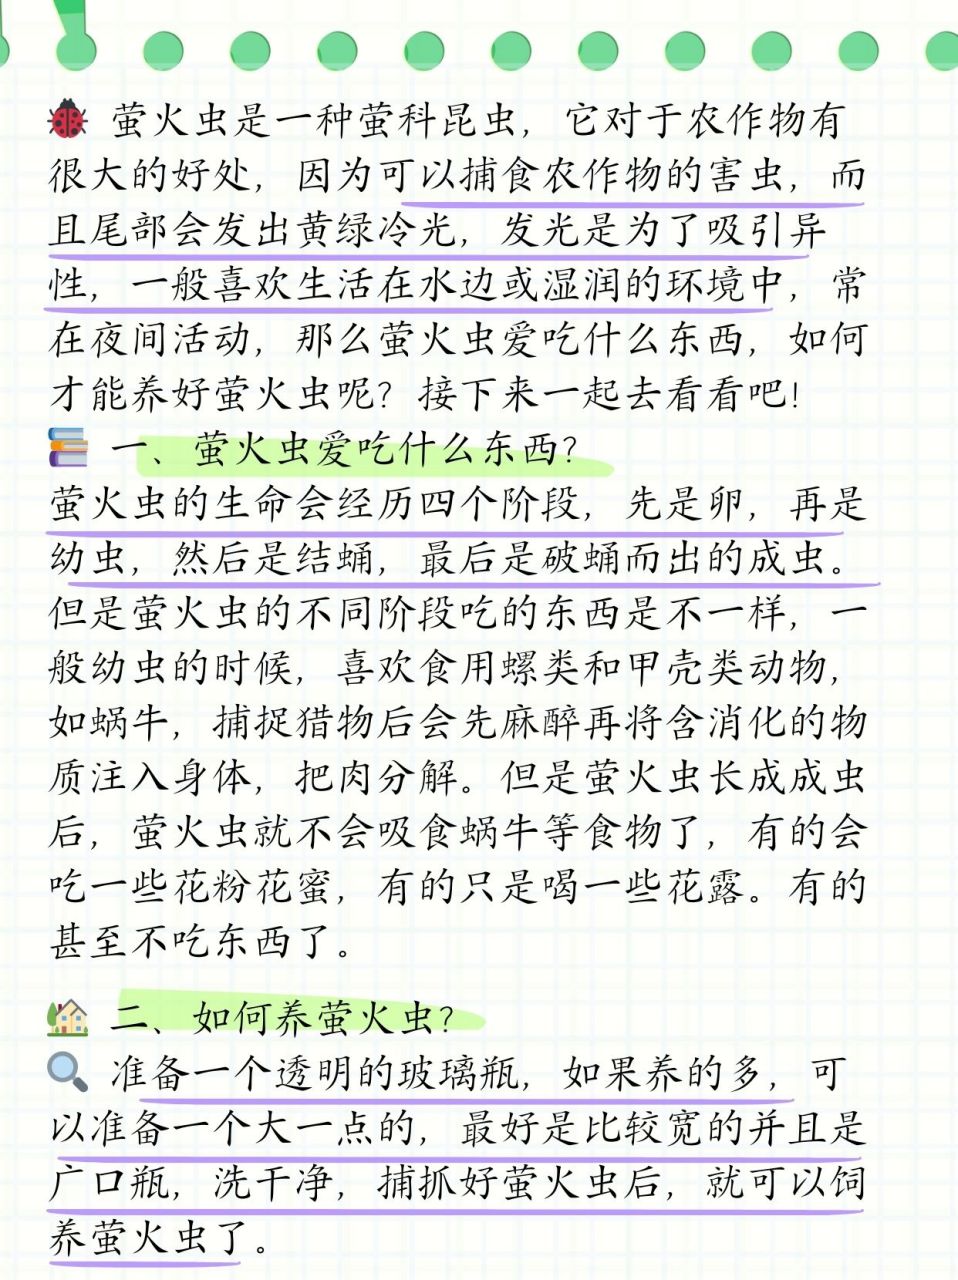 萤火虫是一种萤科昆虫，它对于农作物有
很大的好处，因为可以捕食农作物的害虫，而
且尾部会发出黄绿冷光，发光是为了吸引异
性，一般喜欢生活在水边或湿润的环境中，常
在夜间活动，那么萤火虫爱吃什么东西，如何
才能养好萤火虫呢？接下来一起去看看吧！
一、萤火虫爱吃什么东西？
萤火虫的生命会经历四个阶段，先是卵，再是
幼虫，然后是结蛹，最后是破蛹而出的成虫。
但是萤火虫的不同阶段吃的东西是不一样，一
般幼虫的时候，喜欢食用螺类和甲壳类动物，
如蜗牛，捕捉猎物后会先麻醉再将含消化的物
质注入身体，把肉分解。但是萤火虫长成成虫
后，萤火虫就不会吸食蜗牛等食物了，有的会
吃一些花粉花蜜，有的只是喝一些花露。有的
甚至不吃东西了。
二、如何养萤火虫？
准备一个透明的玻璃瓶，如果养的多，可
以准备一个大一点的，最好是比较宽的并且是
广口瓶，洗干净，捕抓好萤火虫后，就可以饲
养萤火虫了。